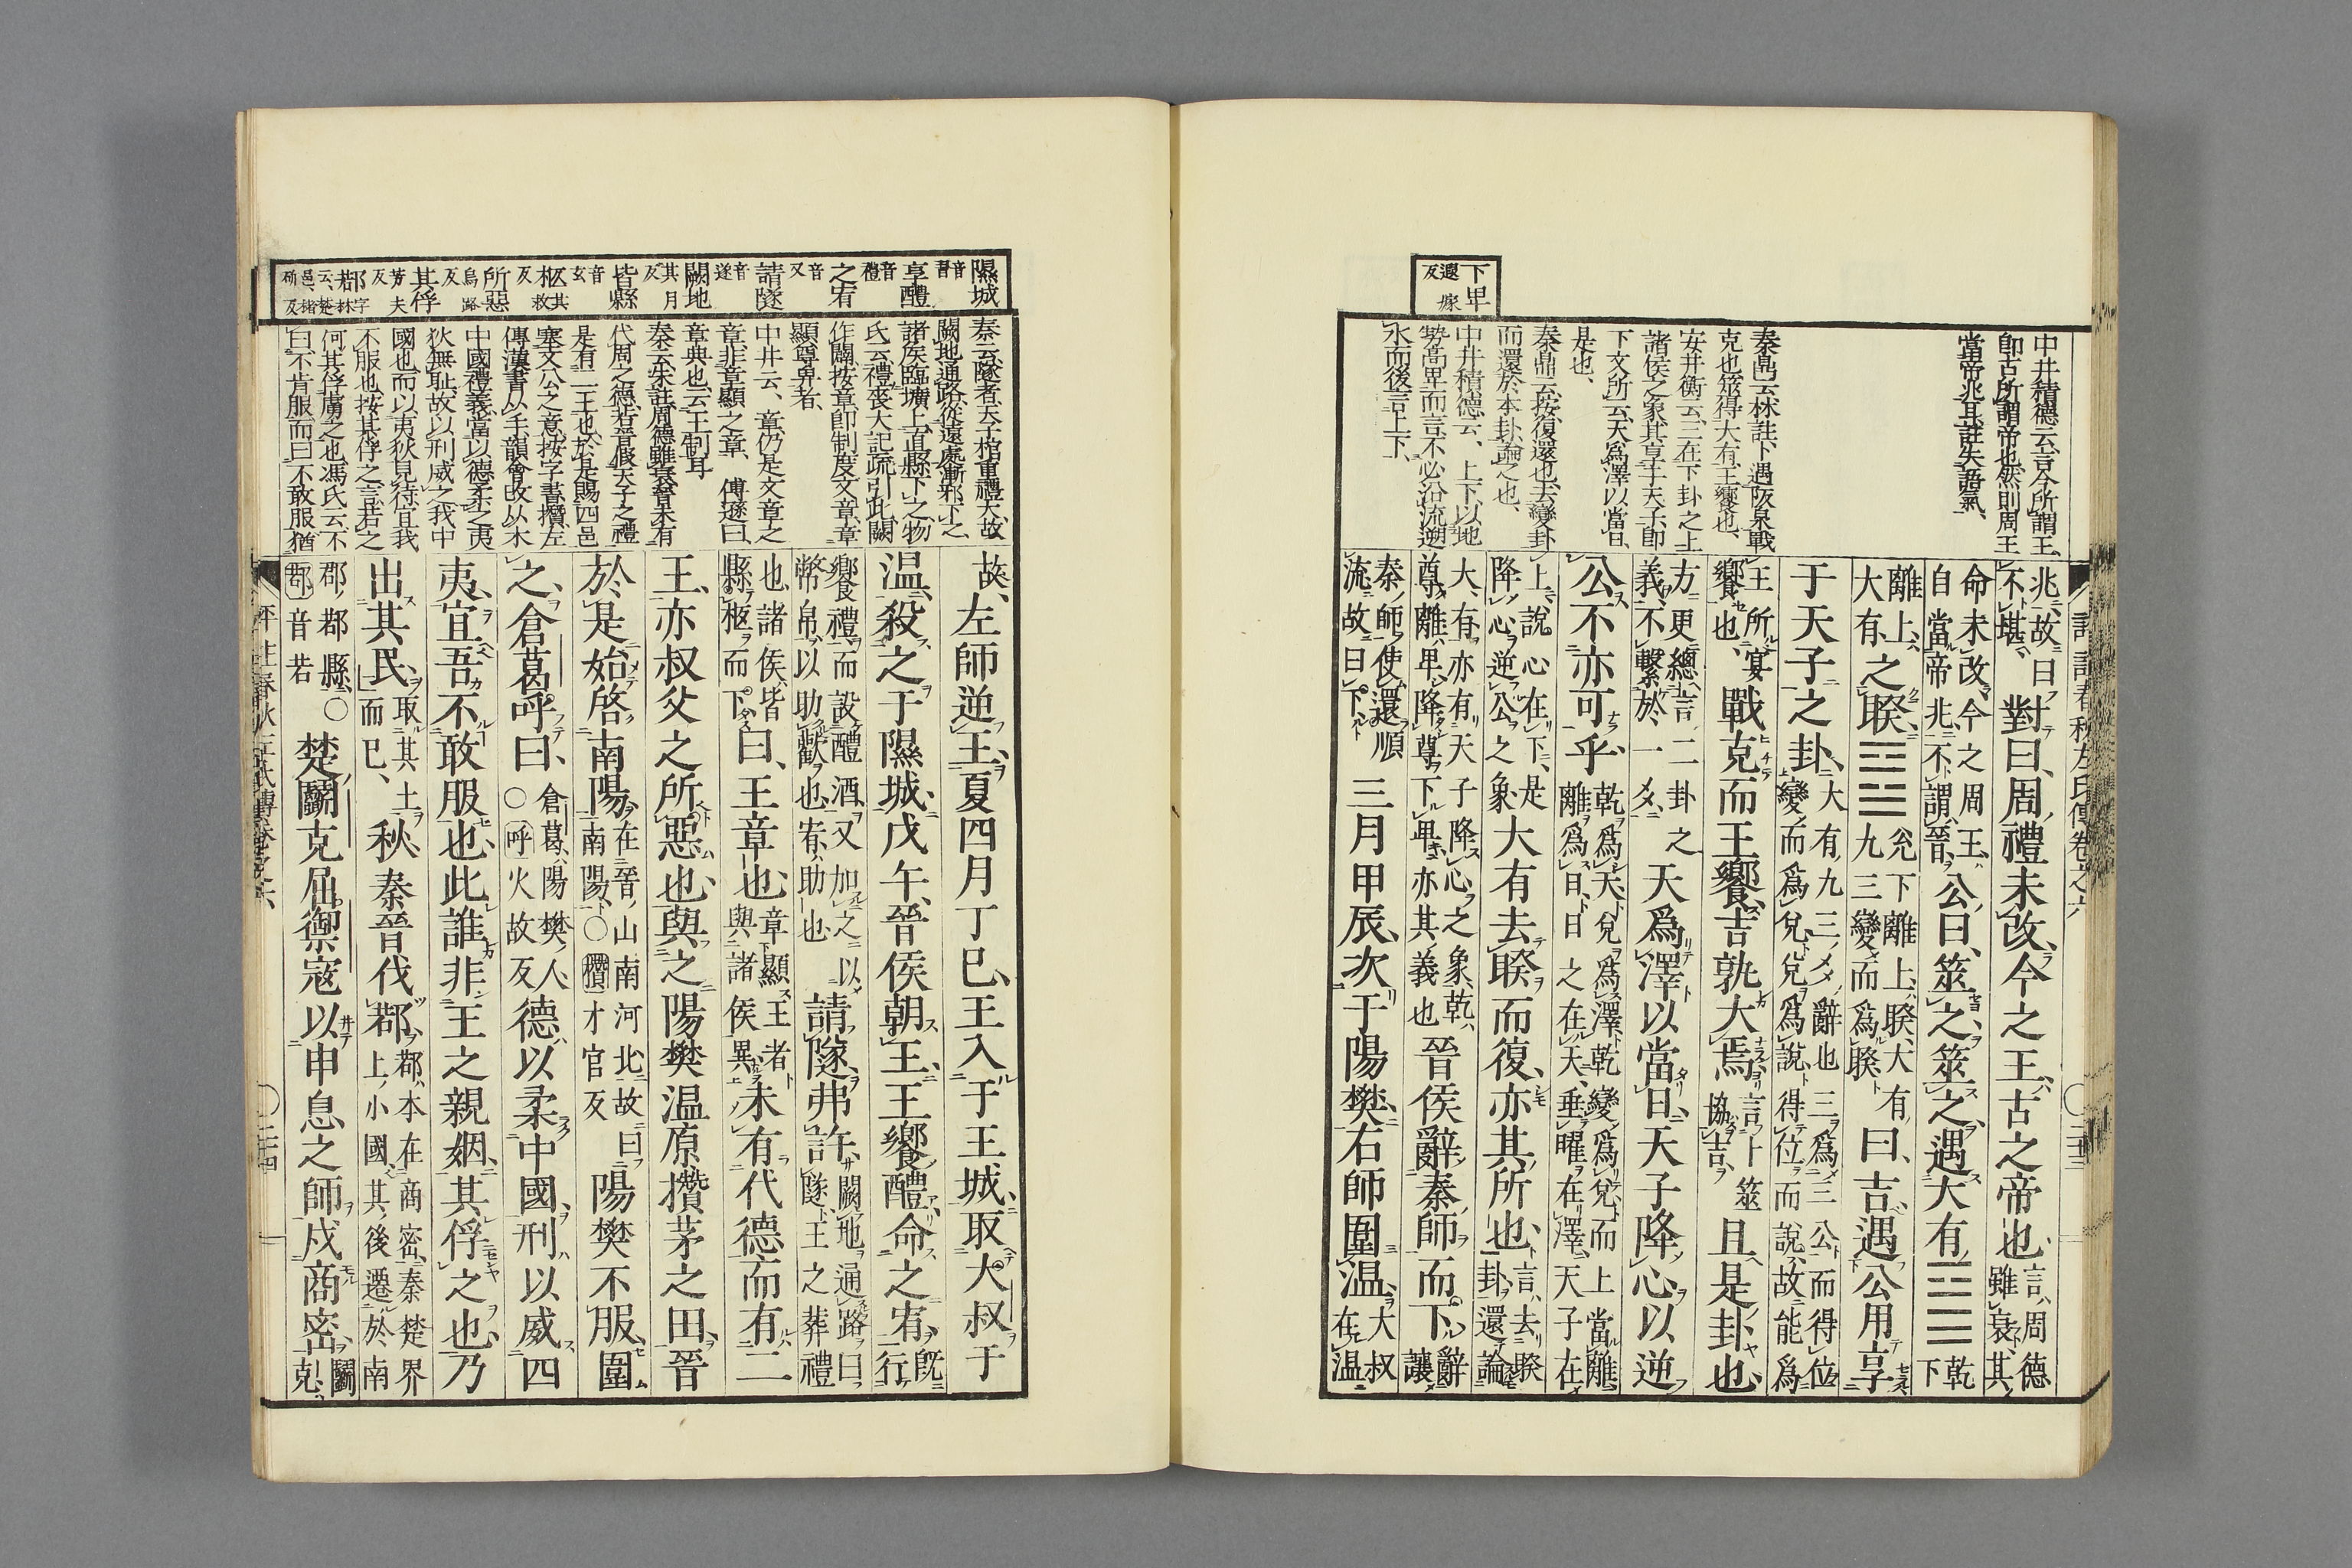 下卑
遐嫁
反
中井積德云言今所謂王、
卽古所謂帝也然則周王
當帝兆耳註失語氣、
秦鼎云林註下遇阪泉戰
克也筮得大有王饗也、
安井衡云三在下卦之上
諸侯之象其享于天子卽
下文所云天爲澤以當日、
是也、
秦鼎云按復還也去變卦
而還於本卦論之也、
中井積德云、上下以地
勢高卑而言不必沿流遡
水而後言上下、
兆故曰不堪對曰周禮未改今之王古之帝也言周德雖衰其
命未改今之周王自當帝兆不謂晉公曰筮之筮之遇大有☰☲乾下
離上大有之睽☱☲兊下離上睽大有九三變而爲睽曰吉遇公用享
于天子之卦大有九三爻辭也三爲三公而得位變而爲兌兌爲說得位而說故能爲
王所宴饗也戰克而王饗吉孰大焉言卜筮協吉且是卦也
方更總言二卦之義不繫於一爻天爲澤以當日天子降心以逆
公不亦可乎乾爲天兌爲澤乾變爲兌而上當離離爲日日之在天垂曜在澤天子在
上說心在下是降心逆公之象大有去睽而復亦其所也言去睽卦還論
大有亦有天子降心之象乾尊離卑降尊下卑亦其義也晉侯辭秦師而下辭讓
秦師使還順流故曰下三月甲辰次于陽樊右師圍溫大叔在溫
註評春秋左氏傳卷之六
隰城
音習
享醴
音禮
之宥
音又
請隧
音遂
闕地
其月反
皆縣
音玄
柩
其救反
所惡
烏路反
其俘
芳夫反
秦云隧者天子格重禮大故
闕地通路從遠處漸邪下之、
諸侯臨壙上直縣下之物
氏云禮喪大記疏引此闕
作闢按章卽制度文章章
顯尊卑者、
中井云、章仍是文章之
章非章顯之章、傅遜曰、
章典也云王制耳
秦云朱註周德雖衰晉未有
代周之德若晉假天子之禮
是有二王也於是賜四邑
塞文公之意按字書攢左
傳漢書从手韻會改从木
中國禮義當以德柔之夷
狄無恥故以刑威之我中
國也而以夷狄見待宜我
不服也按其俘之言若之
何其俘虜之也馮氏云不
曰不肯服而曰不敢服猶
故左師逆王夏四月丁巳王入于王城取大叔于
溫殺之于隰城戊午晉侯朝王王饗醴命之宥旣行
饗禮而設醴酒又加之以幣帛以助歡也宥助也請隧弗許闕地通路曰隧王之葬禮
也諸侯皆縣柩而下曰王章也章顯王者與諸侯異未有代德而有二
王亦叔父之所惡也與之陽樊溫原攢茅之田晉
於是始啓南陽在晉山南河北故曰南陽○攢才官反陽樊不服圍
之倉葛呼曰倉葛陽樊人○呼火故反德以柔中國刑以威四
夷宜吾不敢服也此誰非王之親姻其俘之也乃
出其民取其土而已秋秦晉伐鄀鄀本在商密秦楚界上小國其後遷於南
郡鄀縣○鄀音若楚鬬克屈禦寇以申息之師戍商密鬬克
評註春秋左氏傳卷之六
○二十四